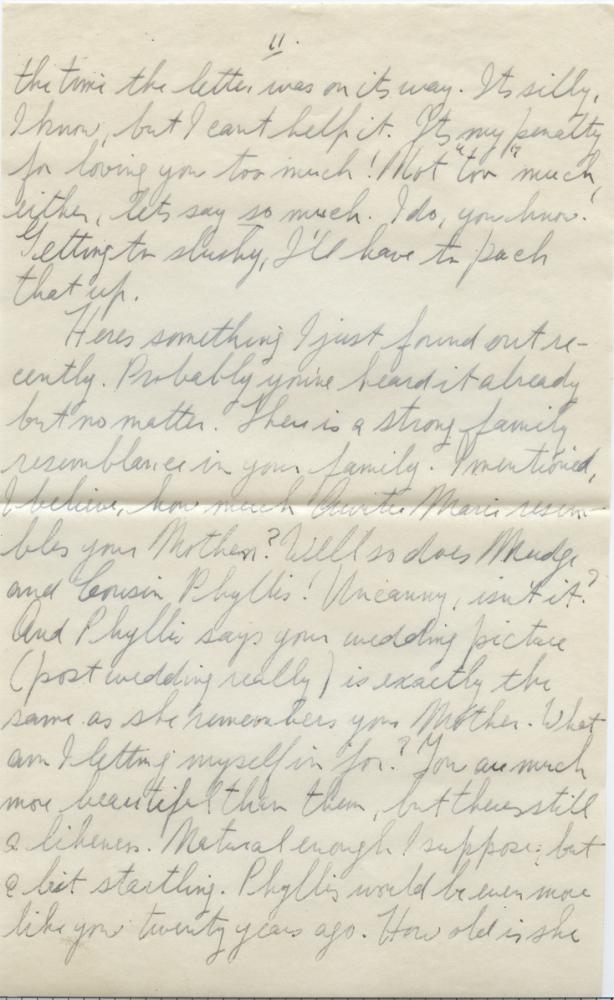 11.
the time the letter was on its way. Its silly,
I know, but I cant help it. Its my penalty
for loving you too much! Not "too" much,
either, lets say so much. I do, you know!
Getting to slushy, I'll have to pack
that up.
Heres something I just found out re-
cently. Probably you've heard it already
but no matter. There is a strong family
resemblance in your family. I mentioned,
I believe, how much Auntie Marie resem-
bles your Mother? Well so does Madge
and Cousin Phyllis! Uncanny, isn't it?
And Phyllis says your wedding picture
(post wedding really) is exactly the
same as she remembers your Mother. What
am I letting myself in for? You are much
more beautiful than them, but theres still
a likeness. Natural enough I suppose, but
a bit startling. Phyllis would be even more
like you twenty years ago. How old is she